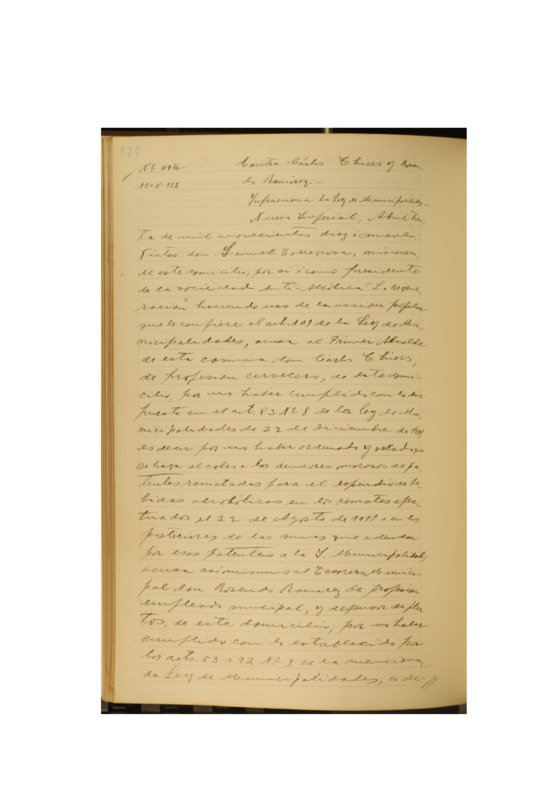 Contra Cárlos Thiers y Rosen
do Ramirez.—
Infraccion a la Ley de Municipalidades.
Nueva Imperial, Abril
ta de mil novecientos diez i nueve.
Vistos: don Samuel Torregrosa, misionero,
de este domicilio, por si i como presidente
de la sociedad anti-alcóhólica "La regene
racion" haciendo uso de la accion popular
que le confiere el art. 109 de la Ley de Mu
nicipalidades, acusa al Primer Alcalde
de esta comuna don Carlos Thiers,
de profesion cervecero, de este domi
cilio, por no haber cumplido con lo dis
puesto en el art. 83 Nº 8 de la ley de Mu
nicipalidades de 22 de Diciembre de
es decir por no haber ordenado y
se haga el cobro a los deudores morosos de pa
tentes rematadas para el espendio de be
bidas alcohólicas en los remates efec
tuados el 22 de Agosto de 1911 i en los
posteriores de las sumas que adeudan
por esas patentes a la I. Municipalidad,
acusa asimismo al Tesorero Munici
pal don Rosendo Ramirez de profesion
empleado municipal, y defensor de plei
tos, de este domicilio, por no haber
cumplido con lo establecido por
los arts. 83 i 92 Nº 3 de la menciona
da Ley de Municipalidades, es decir